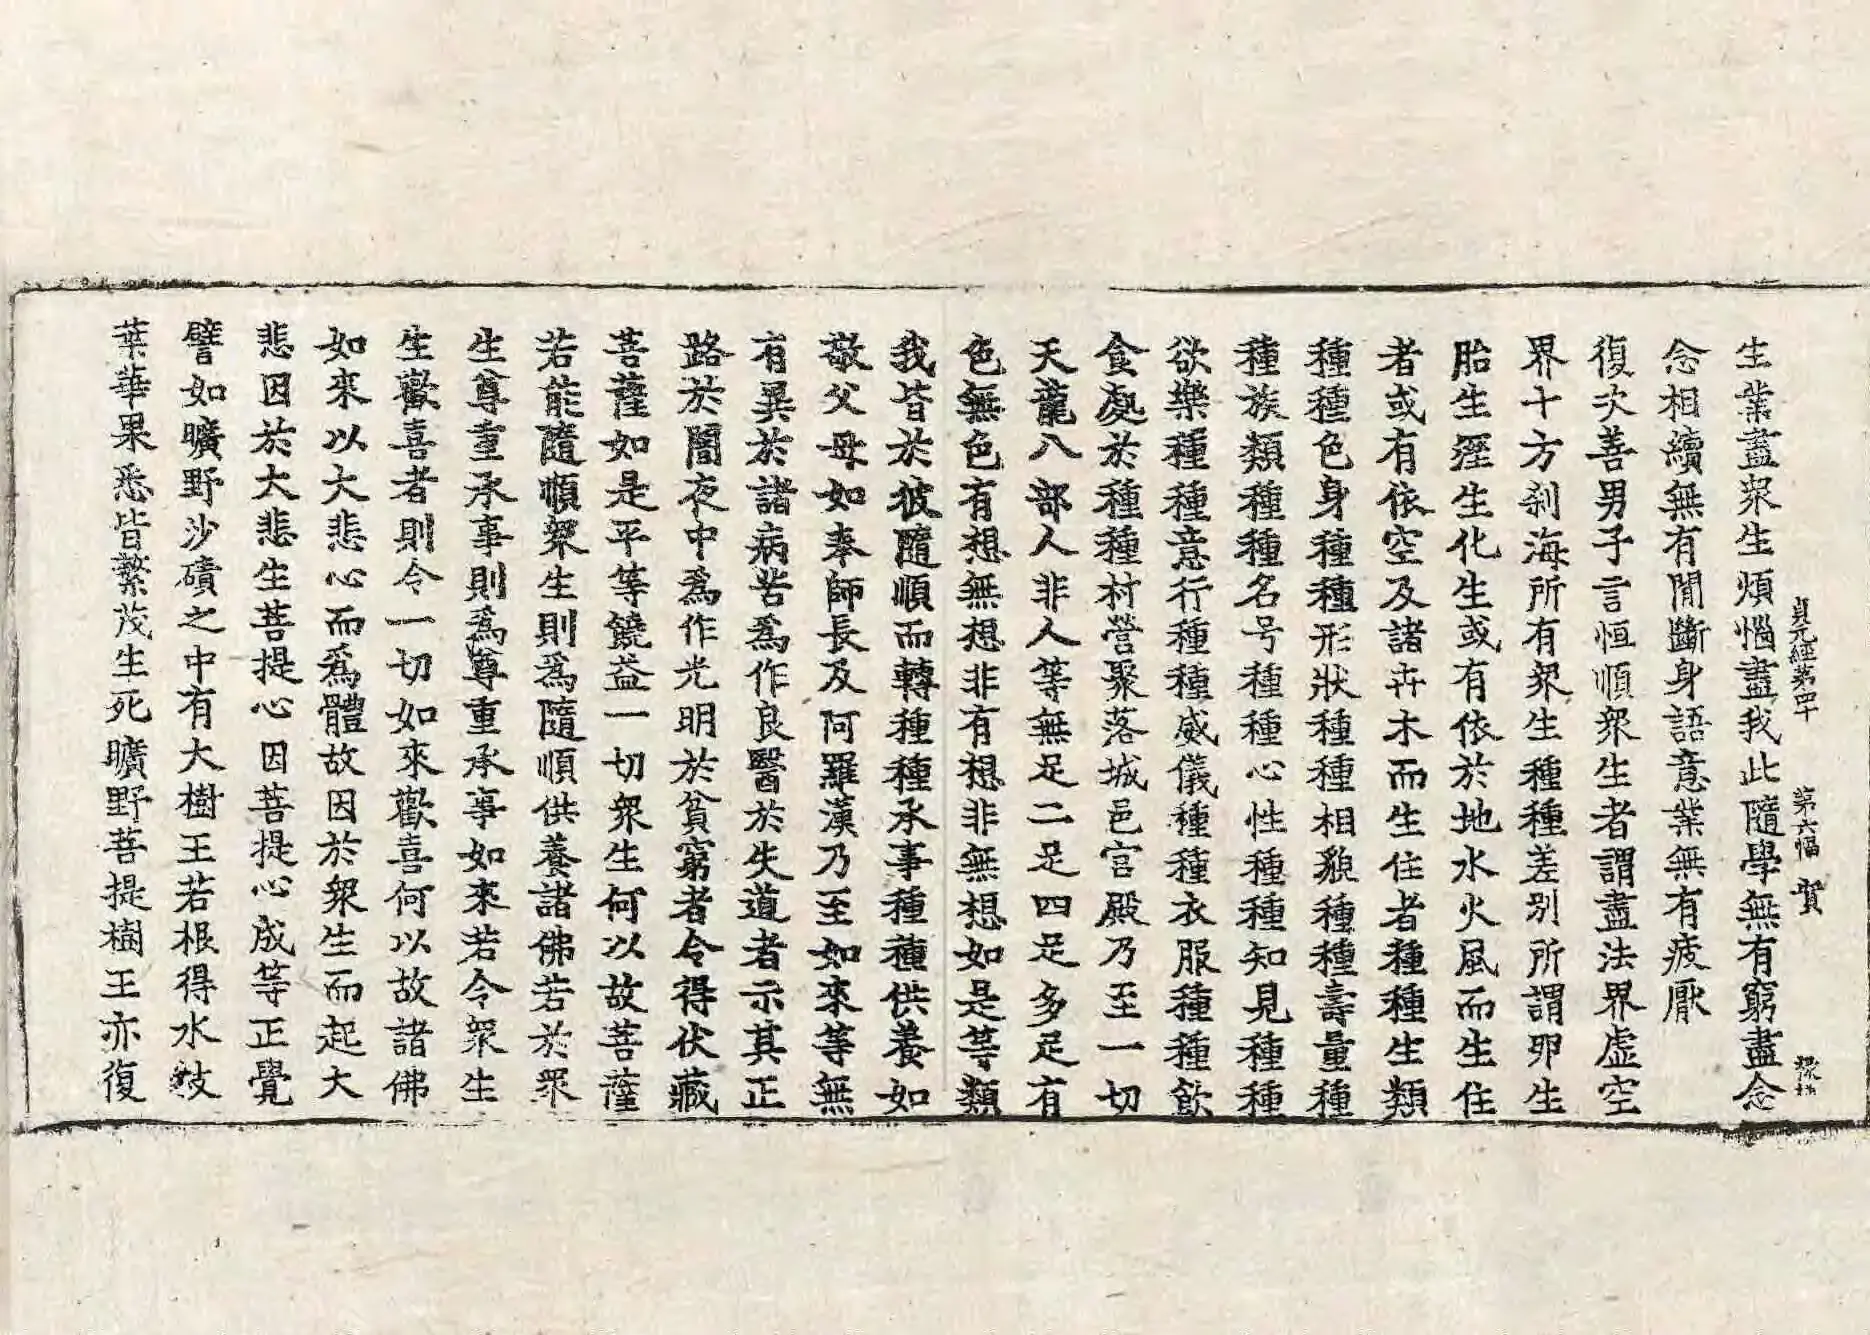 貞元經第四十 第六幅 賀
生業盡衆生煩惱盡我此隨學無有窮盡念
念相續無有間斷身語意業無有疲厭
復次善男子言恒順衆生者謂盡法界虛空
界十方刹海所有衆生種種差别所謂卵生
胎生溼生化生或有依於地水火風而生住
者或有依空及諸卉木而生住者種種生類
種種色身種種形狀種種相貌種種壽量種
種族類種種名号種種心性種種知見種種
欲樂種種意行種種威儀種種衣服種種飲
食處於種種村營聚落城邑宫殿乃至一切
天龍八部人非人等無足二足四足多足有
色無色有想無想非有想非無想如是等類
我皆於彼隨順而轉種種承事種種供養如
敬父母如奉師長及阿羅漢乃至如來等無
有異於諸病苦爲作良醫於失道者示其正
路於闇夜中爲作光明於貧窮者令得伏藏
菩薩如是平等饒益一切衆生何以故菩薩
若能隨順衆生則爲隨順供養諸佛若於衆
生尊重承事則爲尊重承事如來若令衆生
生歡喜者則令一切如來歡喜何以故諸佛
如來以大悲心而爲體故因於衆生而起大
悲因於大悲生菩提心因菩提心成等正覺
譬如曠野沙磧之中有大樹王若根得水枝
葉華果悉皆繁茂生死曠野菩提樹王亦復